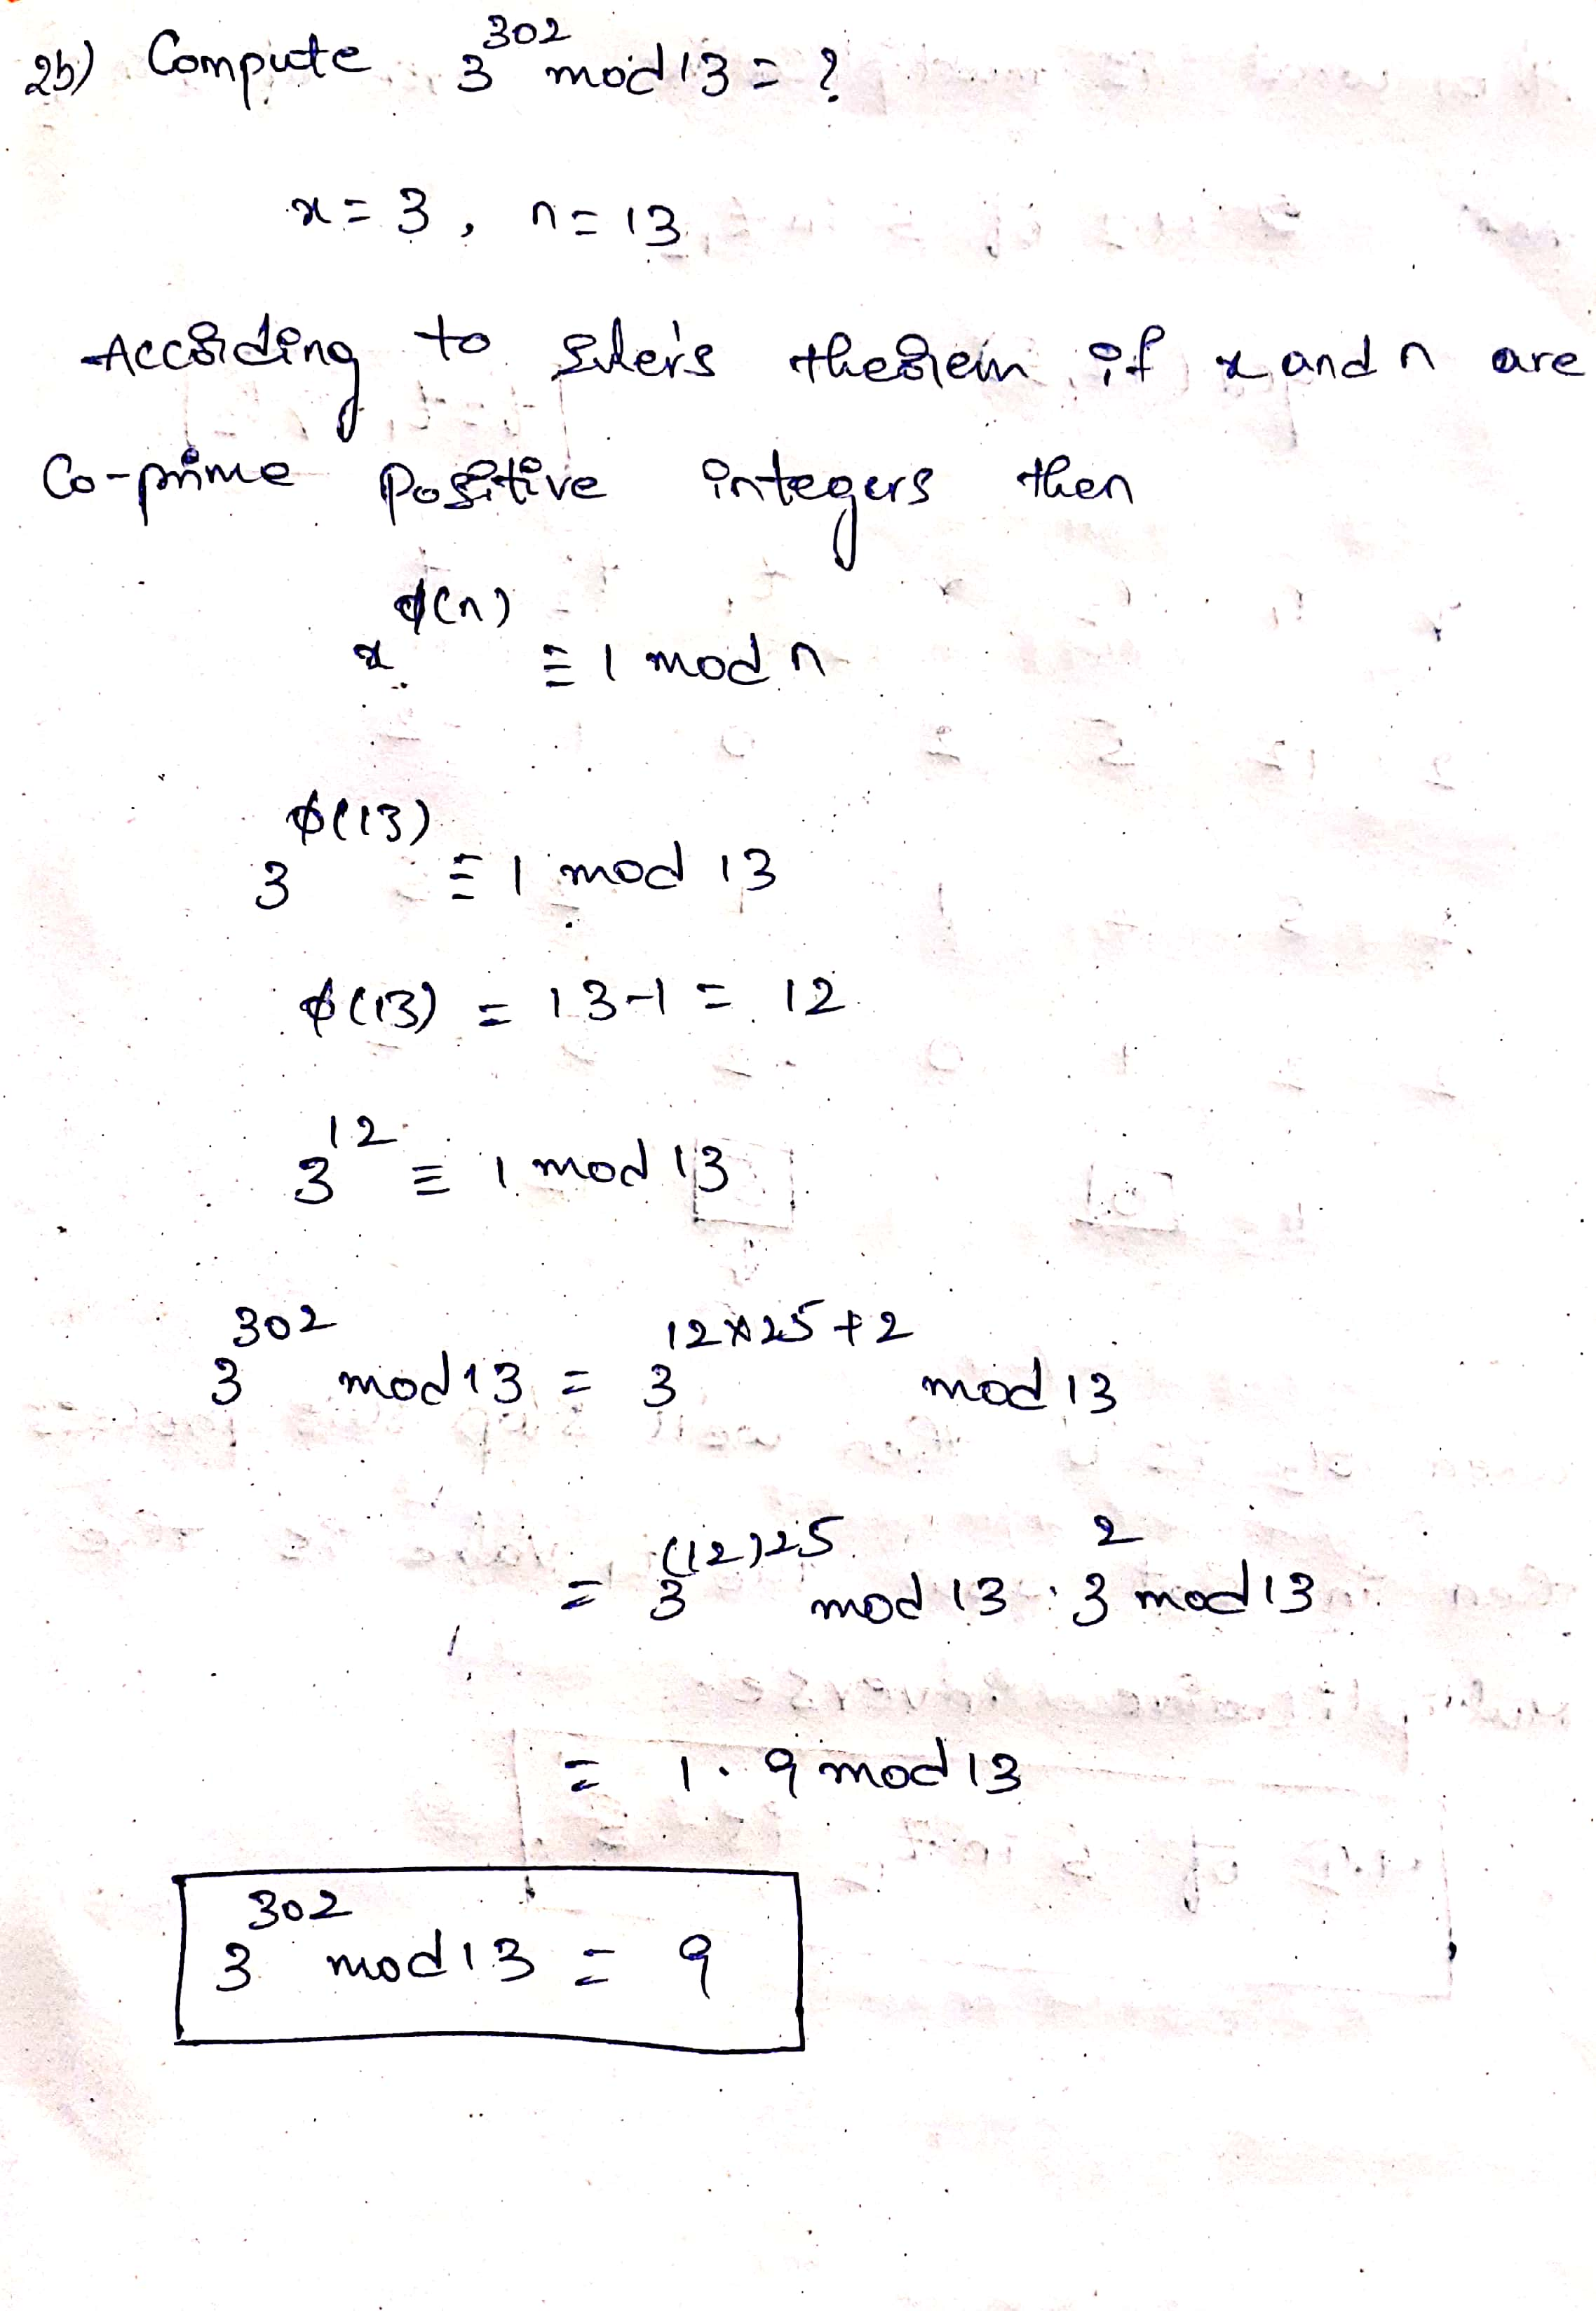 2b) Compute 3^302 mod 13 = ?
x = 3, n = 13
According to Euler's theorem if x and n are
Co-prime positive integers then
x^ϕ(n) ≡ 1 mod n
3^ϕ(13) ≡ 1 mod 13
ϕ(13) = 13-1 = 12
3^12 ≡ 1 mod 13
3^302 mod 13 = 3^12×25+2 mod 13
= 3^(12)25 mod 13 · 3^2 mod 13
= 1 · 9 mod 13
3^302 mod 13 = 9